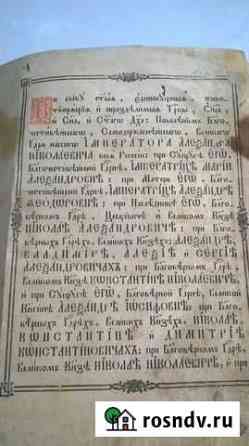 Во славу ст҃ыѧ, є҆диносꙋщныѧ, живо-
творѧщїѧ и҆ нераздѣльныѧ Трⷪ҇цы, Ѻ҆ц҃а и҆
Сн҃а, и҆ Ст҃агѡ Дх҃а: Повелѣнїемъ Благо-
честивѣйшагѡ, Самодержавнѣйшагѡ, Великагѡ
Гдⷭ҇рѧ нашегѡ ІМПЕРАТОРА АЛЕѮАНДРА
НІКОЛАЕВИЧА всеѧ Рѡссїи: при Сꙋпрꙋгѣ ЕГѠ,
Благочестивѣйшей Гдⷭ҇рынѣ, ІМПЕРАТРИЦѢ МАРІИ
АЛЕѮАНДРОВНѢ: при Матери ЕГѠ, Благо-
честивѣйшей Гдⷭ҇рынѣ, ІМПЕРАТРИЦѢ АЛЕѮАНДРѢ
ѲЕОДОРОВНѢ; при Наслѣдникѣ ЕГѠ, Благо-
вѣрномъ Гдⷭ҇рѣ, Цесаревичѣ и҆ Великомъ Кнѧзѣ
НІКОЛАѢ АЛЕѮАНДРОВИЧѢ; при Благо-
вѣрныхъ Гдⷭ҇рѣхъ, Великихъ Кнѧзехъ: АЛЕѮАНДРѢ,
ВЛАДИМІРѢ, АЛЕѮІИ и҆ СЕРГІИ
АЛЕѮАНДРОВИЧАХЪ; при Благовѣрномъ Гдⷭ҇рѣ,
Великомъ Кнѧзѣ КѠНСТАНТІНѢ НІКОЛАЕВИЧѢ,
и҆ при Сꙋпрꙋгѣ ЕГѠ, Благовѣрной Гдⷭ҇рынѣ, Великой
Кнѧгинѣ АЛЕѮАНДРѢ ІѠСИФОВНѢ; при Благовѣр-
ныхъ Гдⷭ҇рѣхъ, Великихъ Кнѧзехъ НІКОЛАѢ,
КѠНСТАНТІНѢ и҆ ДИМИТРІИ
КѠНСТАНТІНОВИЧАХЪ; при Благовѣрномъ Гдⷭ҇рѣ,
Великомъ Кнѧзѣ НІКОЛАѢ НІКОЛАЕВИЧѢ, и҆ при
rosndv.ru